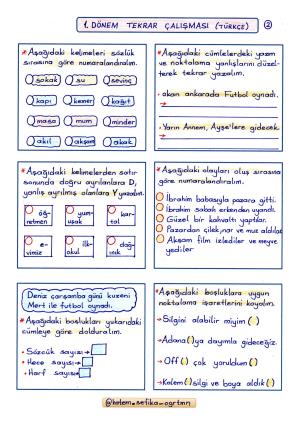 1. DÖNEM TEKRAR ÇALIŞMASI (TÜRKÇE)
2
* Aşağıdaki kelimeleri sözlük
sırasına göre numaralandıralım.
sokak su sevinç
kapı kener kağıt
masa mum minder
akıl akşam abak
* Aşağıdaki cümlelerdeki yazım
ve noktalama yanlışlarını düzel-
terek tekrar yazalım.
akan ankarada Futbol oynadı.
Yarın Annem, Ayşe'lere gidecek
* Aşağıdaki kelimelerden satır
sonunda doğru ayrılanlara D,
yanlış ayrılmış olanlara Y yazalım.
öğ-
retmen
yum-
uşak
kar-
tal
e-
vimiz
ilk-
okul
dağ-
ınık
* Aşağıdaki olayları oluş sırasına
göre numaralandıralım.
İbrahim babasıyla pazara gitti.
İbrahim sabah erkenden uyandı.
Güzel bir kahvaltı yaptılar.
Pazardan çilek, nar ve muz aldılar.
Akşam film izlediler ve meyve
yediler
Deniz çarşamba günü kuzeni
Mert ile futbol oynadı
* Aşağıdaki boşlukları yukarıdaki
cümleye göre dolduralım.
Sözcük sayısı→
Hece sayısı→
Harf sayısı→
* Aşağıdaki boşluklara uygun
noktalama işaretlerini koyalım.
→ Silgini alabilir miyim ( )
→ Adana( )ya dayımla gideceğiz.
→ Off ( ) çok yoruldum ( )
→ Kalem( ) silgi ve boya aldık ( )
@kalem_sefika_ogrtmn